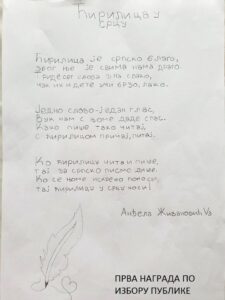 Ћирилица у
срцу
Ћирилица је српско благо,
због ње је свима нама драго.
Тридесет слова зна свако,
чак их и дете учи брзо, лако.
Једно слово-један глас,
Вук нам с њоме даде спас.
Како пише тако читај,
с ћирилицом причај, питај.
Ко ћирилицу чита и пише,
тај за српско писмо дише.
Ко се њоме искрено поноси,
тај ћирилицу у срцу носи!
Анђела Живановић V₃
ПРВА НАГРАДА ПО
ИЗБОРУ ПУБЛИКЕ